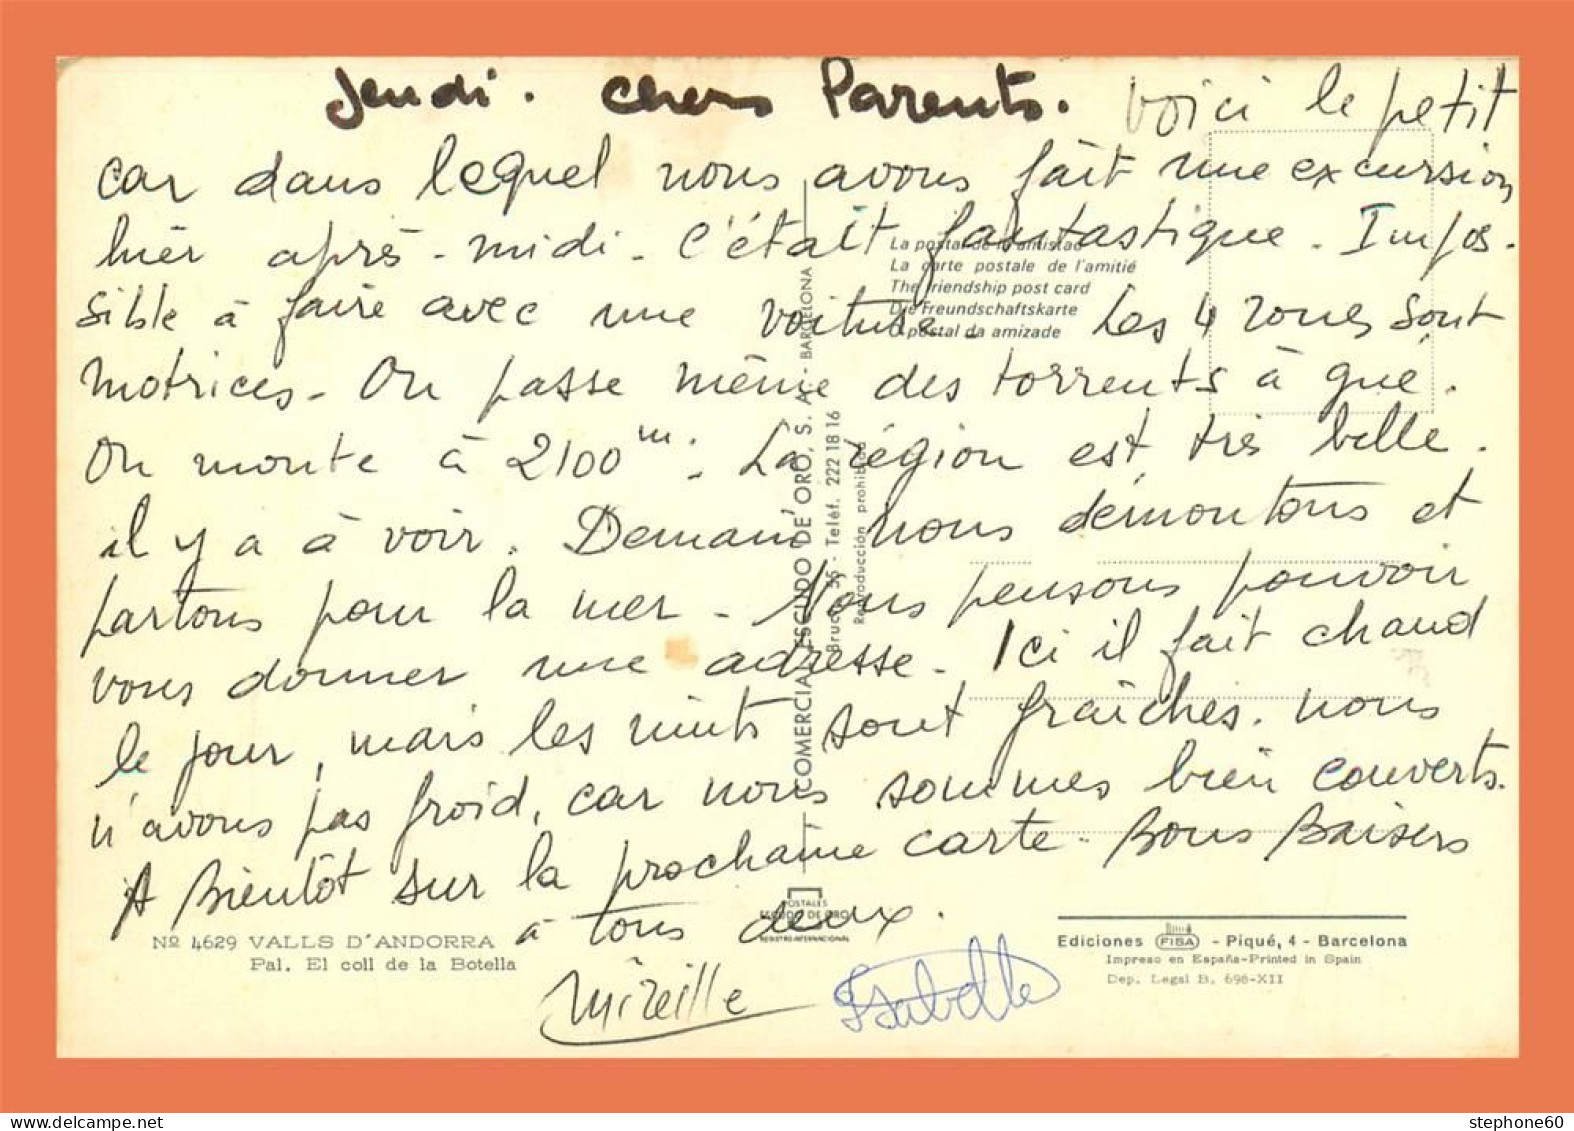 Jeudi. chers Parents. Voici le petit
car dans lequel nous avons fait une excursion
hier après-midi. C'était fantastique. Impos-
sible à faire avec une voiture. Les 4 roues sont
motrices. On passe même des torrents à gué.
On monte à 2100 m. La région est très belle.
il y a à voir. Demain nous démontons et
partons pour la mer. Nous pensons pouvoir
vous donner une adresse. Ici il fait chaud
le jour, mais les nuits sont fraîches. nous
n'avons pas froid, car nous sommes bien couverts.
A Bientôt sur la prochaine carte. Bons Baisers
à tous deux.
Mireille Isabelle
La postal de la amistad
La carte postale de l'amitié
The friendship post card
Die Freundschaftskarte
O postal da amizade
COMERCIAL ESCUDO DE ORO, S. A. - BARCELONA
Bruc, 55 - Teléf. 222 18 16
Reproducción prohibida
POSTALES
ESCUDO DE ORO
REGISTRO INTERNACIONAL
Nº 4629 VALLS D'ANDORRA
Pal. El coll de la Botella
Ediciones FISA - Piqué, 4 - Barcelona
Impreso en España-Printed in Spain
Dep. Legal B. 698-XII
stephone60